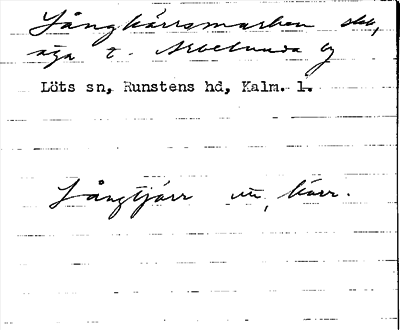 Långkärrsmarken sko,
äga t. Arbelunda by
Löts sn, Runstens hd, Kalm. l.
Långtjärr
kärr.